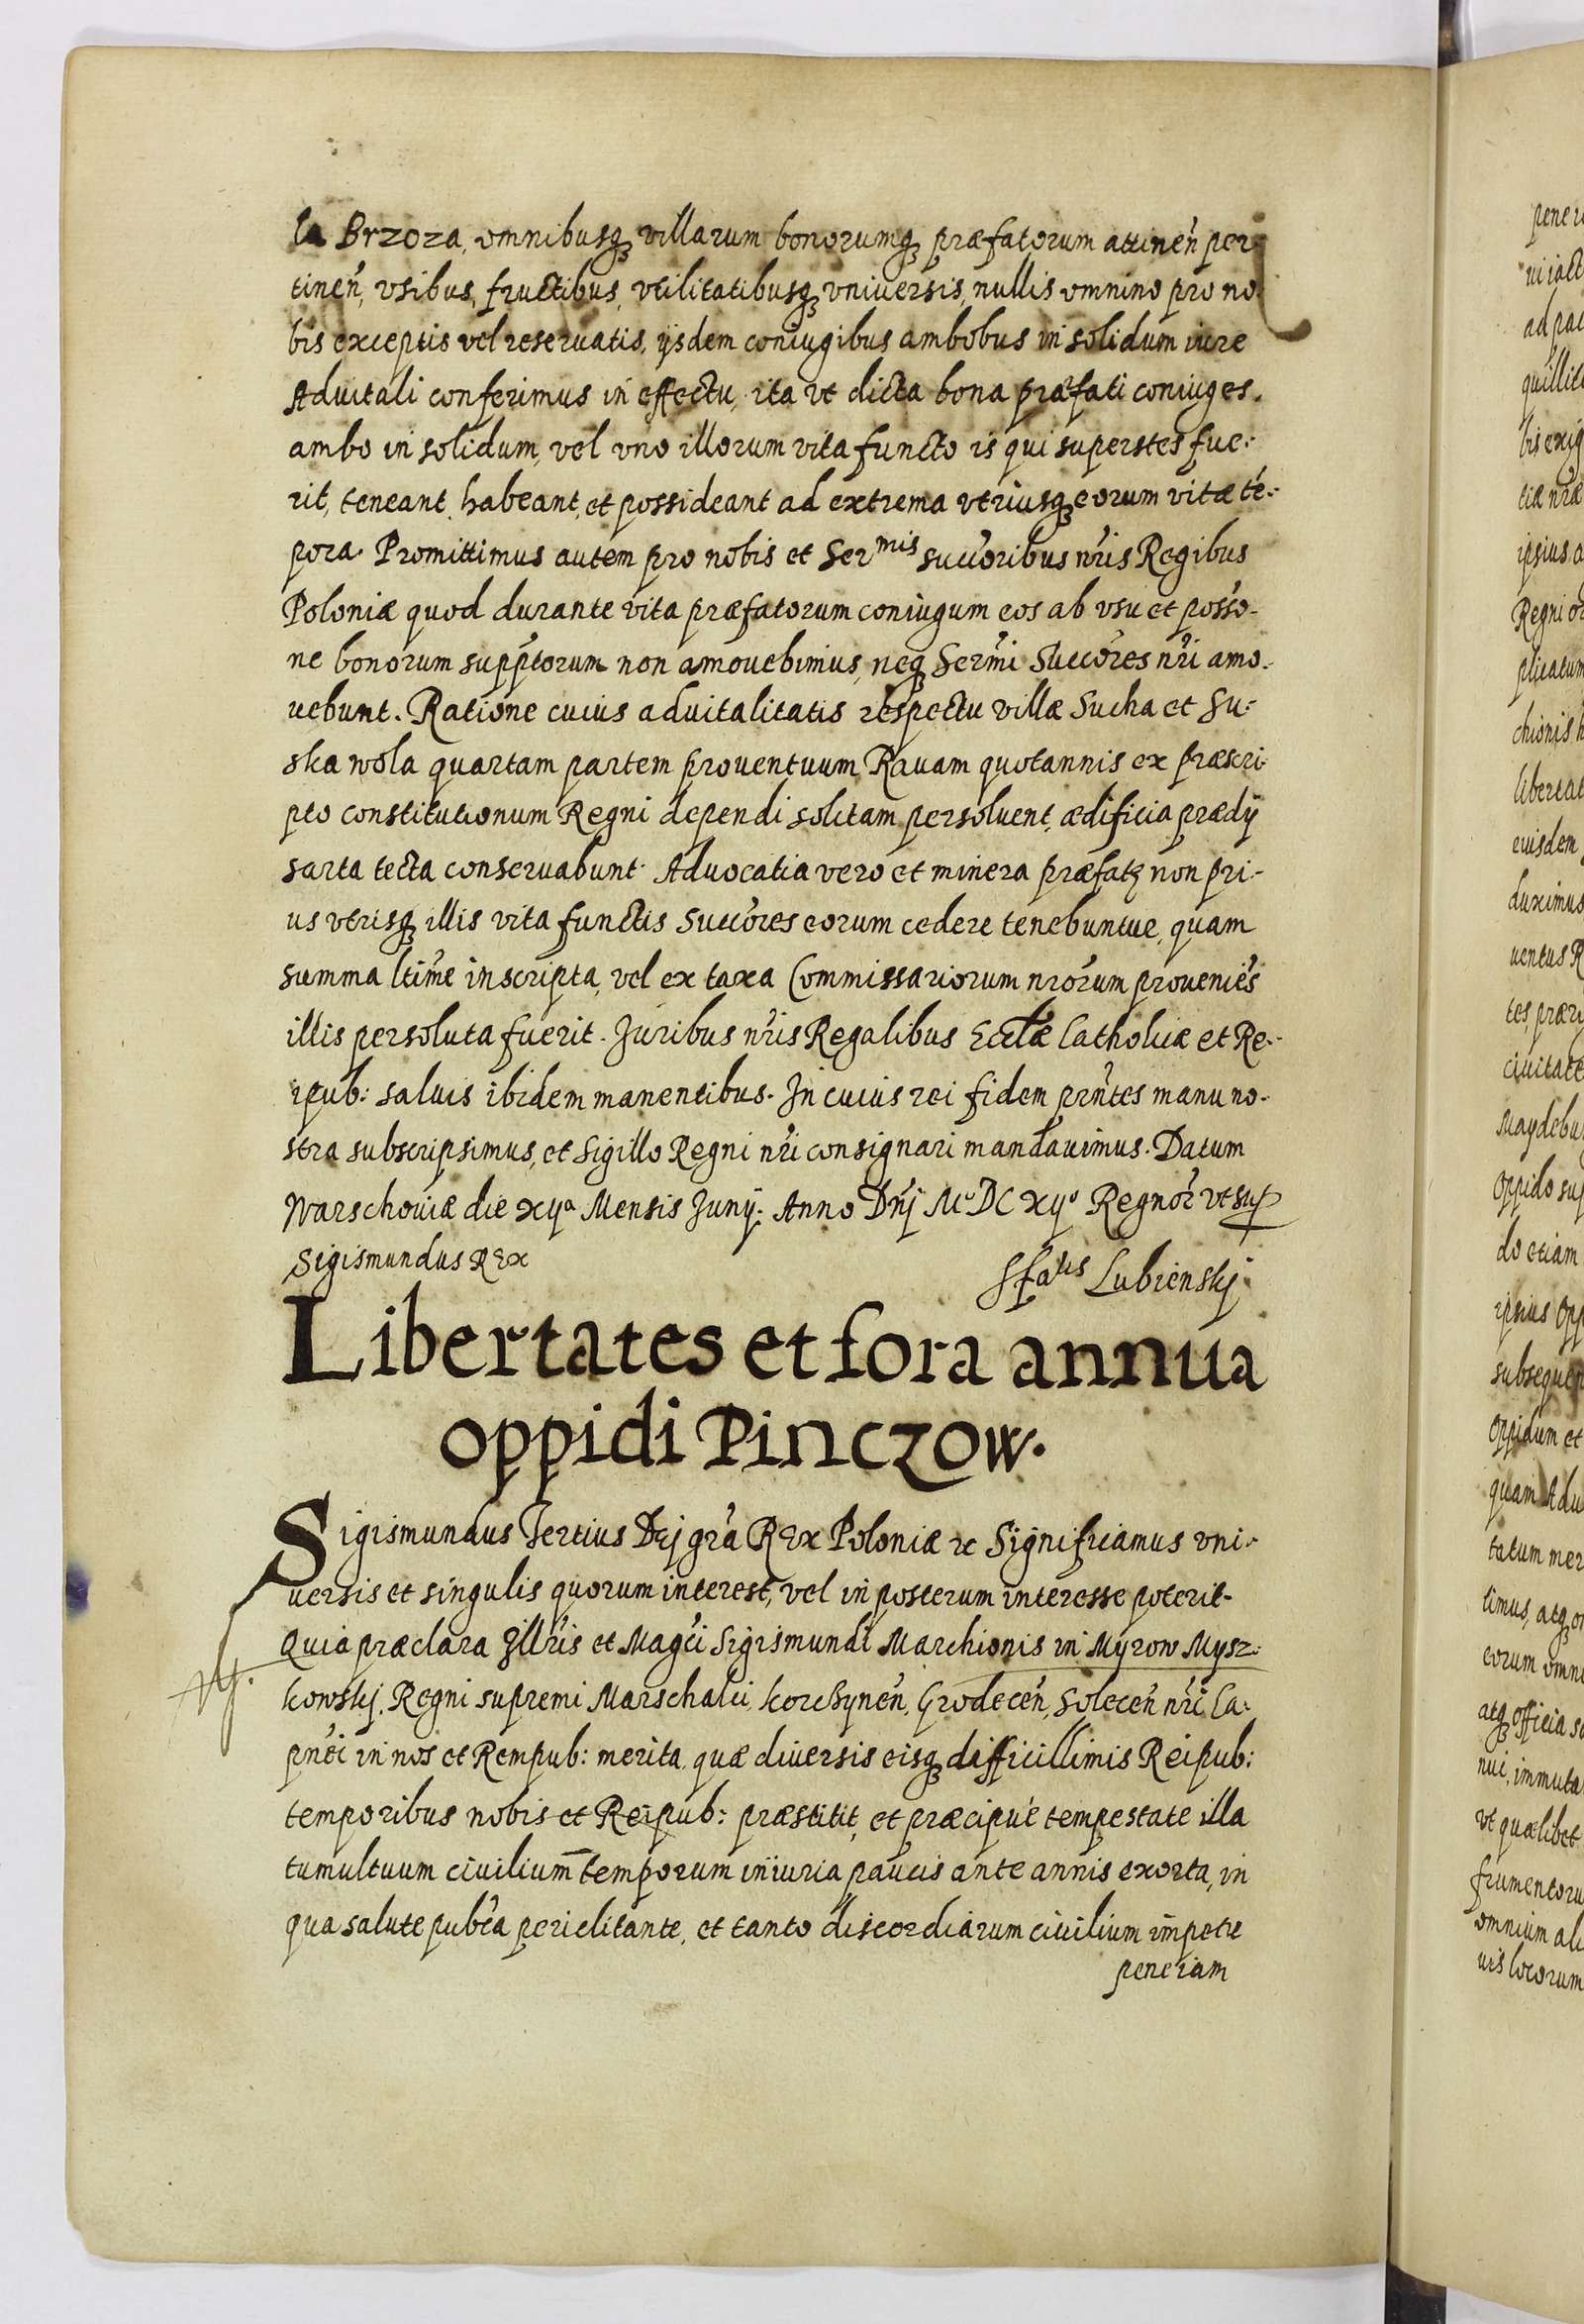 la Brzoza, omnibusq; villarum bonorumq; præfatorum attineń per
tineń, vsibus, fructibus, vtilitatibusq; vniuersis, nullis omnino pro no
bis exceptis vel reseruatis, ijsdem coniugibus ambobus in solidum iure
Aduitali conferimus in effectu, ita vt dicta bona præfati coniuges.
ambo in solidum, vel vno illorum vita functo is qui superstes fue:
rit, teneant, habeant, et possideant ad extrema vtriusq; eorum vitæ té:
pora. Promittimus autem pro nobis et Sermis succoribus nris Regibus
Poloniæ quod durante vita præfatorum coniugum eos ab vsu et posso-
ne bonorum supptorum non amouebimus, neq; Sermi Succores nri amo-
uebunt. Ratione cuius aduitalitatis respectu villæ Sucha et Su:
ska wola quartam partem prouentuum Rauam quotannis ex præscri-
pto constitutionum Regni dependi solitam persoluent, ædificia prædij
sarta tecta conseruabunt. Aduocatia vero et minera præfatę non pri-
us vtrisq; illis vita functis Succores eorum cedere tenebuntur, quam
summa ltime inscripta, vel ex taxa Commissariorum nrorum prouenies
illis persoluta fuerit. Juribus nris Regalibus Ecclæ Catholicæ et Re-
ipub: saluis ibidem manentibus. In cuius rei fidem prntes manu no-
stra subscripsimus, et Sigillo Regni nri consignari mandauimus. Datum
Warschouiæ die xija Mensis Junij. Anno Dnj Mo DC xijo Regnor vt sup
Sigismundus REx
Sfaus Lubienskj
Libertates et fora annua
oppidi Pinczow.
Sigismundus Tertius Dej gra REx Poloniæ &c Significamus vni-
uersis et singulis quorum interest, vel in posterum interesse poterit.
Quia præclara Illris et Magci Sigismundi Marchionis in Myrow Mysz:
kowskj, Regni supremi Marschalci, korchyneń, Grodeceń, Soleceń nri Ca:
pnei in nos et Rempub: merita, quæ diuersis eisq; difficillimis Reipub:
temporibus nobis et Reipub: præstitit, et præcipué tempestate illa
tumultuum ciuilium temporum iniuria paucis ante annis exorta, in
qua salute pubca periclitante, et tanto discordiarum ciuilium impetu
peneriam
penere
ad pac
bis exig
ipsius a
libertat
eiusdem
duximus
uentus R
ciuitate
Maydebu
Oppido sup
do etiam
ipsius Opp
subsequen
Oppidum et
quam Adu
tatum mer
timus, atq; o
eorum omni
atq; officia s
nui, immuta
vt quælibet
frumentoru
omnium ali
uis locorum